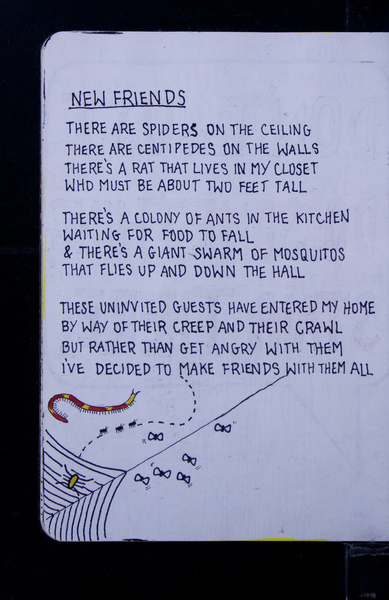 NEW FRIENDS
THERE ARE SPIDERS ON THE CEILING
THERE ARE CENTIPEDES ON THE WALLS
THERE'S A RAT THAT LIVES IN MY CLOSET
WHO MUST BE ABOUT TWO FEET TALL
THERE'S A COLONY OF ANTS IN THE KITCHEN
WAITING FOR FOOD TO FALL
& THERE'S A GIANT SWARM OF MOSQUITOS
THAT FLIES UP AND DOWN THE HALL
THESE UNINVITED GUESTS HAVE ENTERED MY HOME
BY WAY OF THEIR CREEP AND THEIR CRAWL
BUT RATHER THAN GET ANGRY WITH THEM
I'VE DECIDED TO MAKE FRIENDS WITH THEM ALL